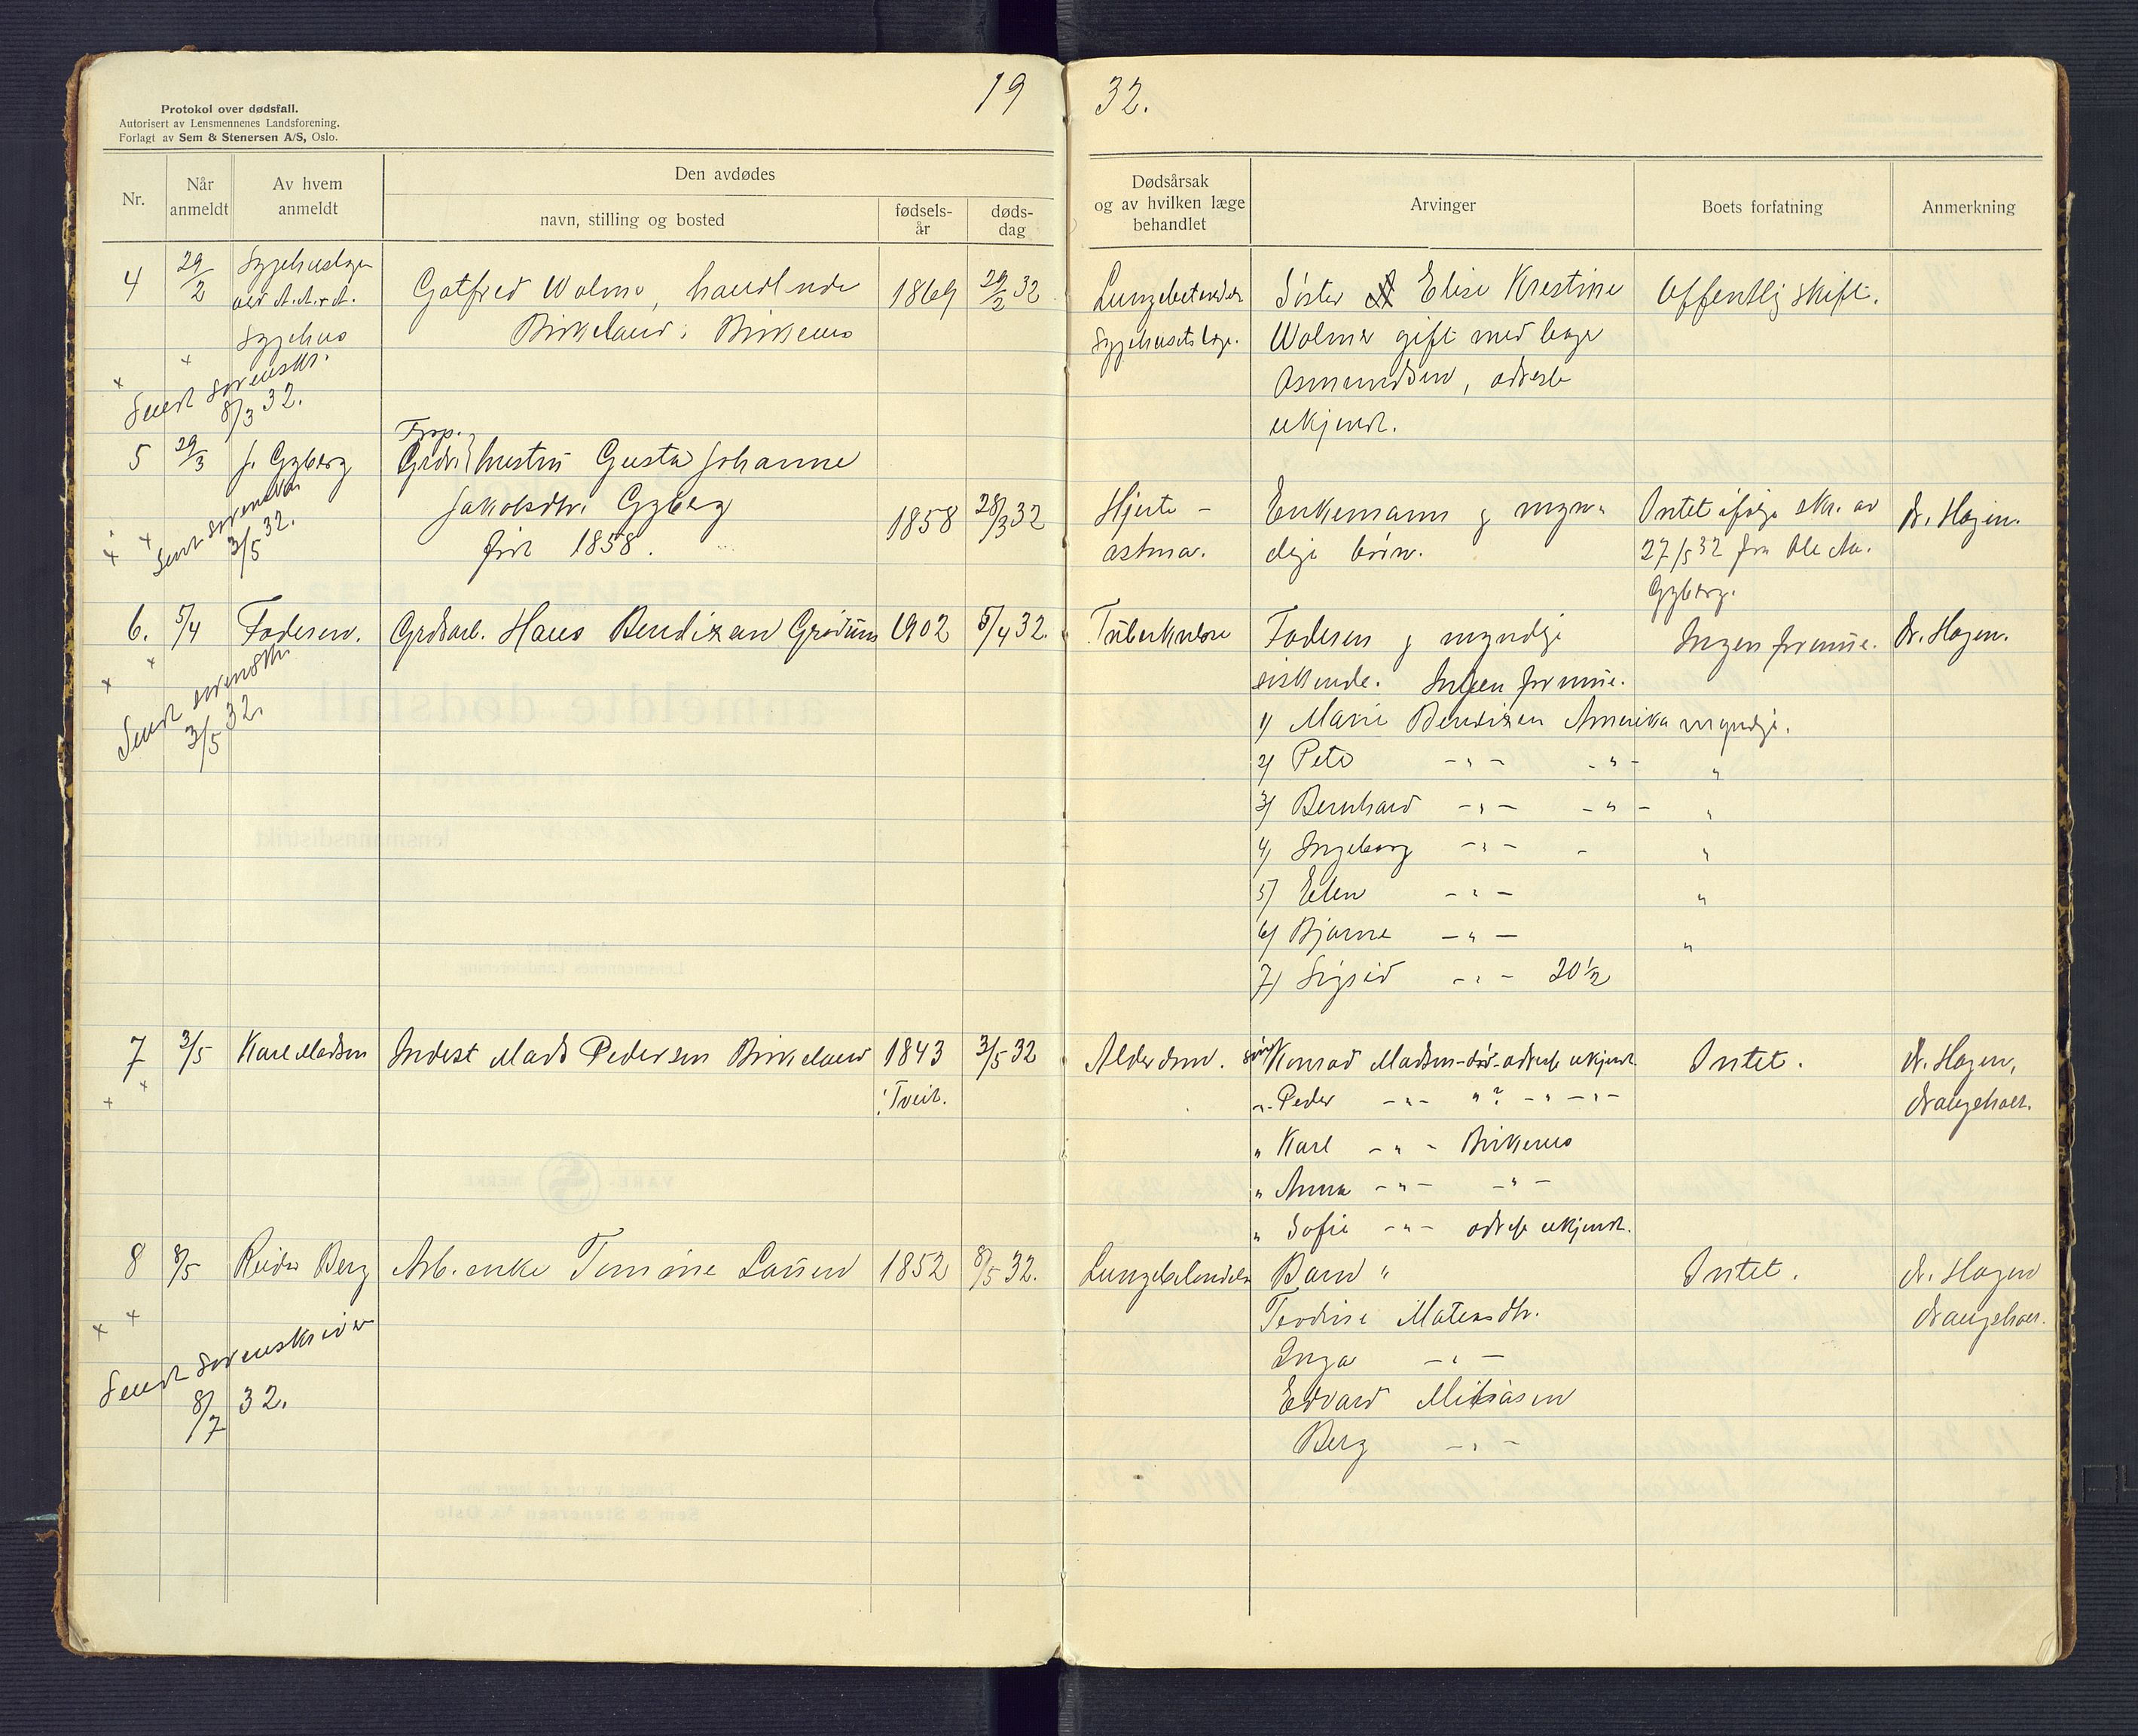 19 32.
Protokol over dødsfall.
Autorisert av Lensmennenes Landsforening.
Forlagt av Sem & Stenersen A/S, Oslo.
Nr.
Når anmeldt
Av hvem anmeldt
Den avdødes
navn, stilling og bosted
fødsels-år
døds-dag
Dødsårsak og av hvilken læge behandlet
Arvinger
Boets forfatning
Anmerkning
4 29/2 Gotfred Wolmer, handlende 1869 29/2 32 Lungebetendelse Søster Elise Kristine Offentlig skift.
ved A.A. & A. Birkeland i Birkenes Wolmer gift med
Sygehus Osmundsen, adresse
Sendt Sorenskr. ukjendt.
8/3 32.
Frap.
5 29/3 J. Gyberg hustru Gusta Johanne
Jakobsdtr. Gyberg 1858 28/3 32 Hjerte- Enkemann og myn- Intet ifølge skr. av dr. Hagen.
født 1858. astma. dige børn. 27/5 32 fra Ole
Sendt
3/5 32. Gyberg.
6. 5/4 Faderen. Grdsarb. Hans Bendixen 1902 5/4 32. Tuberkulose Faderen og myndige Ingen formue. dr. Hagen.
søskende. Ingen formue.
Sendt sorenskr. 1) Marie Bendixen Amerika myndige.
3/5 32. 2) Peter -"- -"- "
3) Bernhard -"- -"- "
4) Ingeborg -"- - "
5) Elen -"- "
6) Bjarne -"- "
7) Sigrid -"- 20 1/2
7 3/5 Karl Madsen Inderst Mads Pedersen Birkeland 1843 3/5 32 Alderdom. Konrad Madsen - adresse ukjendt. Intet. dr. Hagen,
i Tveit. " Peder -"- " ? -"- -"- Drangsholt.
" Karl -"- Birkenes
" Anna -"- -"-
" Sofie -"- adresse ukjendt.
8 8/5 Reidar Berg Arb. enke Larsen 1852 8/5 32. Lungebetendelse Barn " Intet. dr. Hagen
Drangsholt.
Sendt Sorenskriver Inga -"-
8/7 32. Edvard
Berg -"-